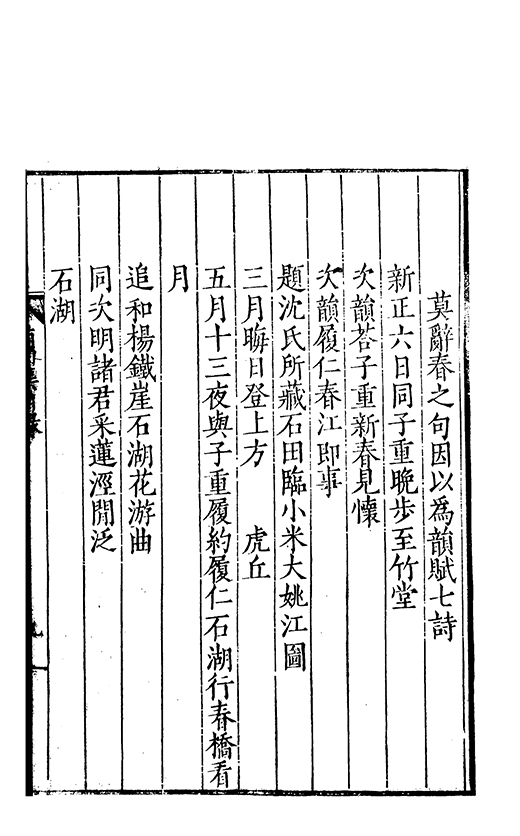 莫辭春之句因以為韻賦七詩
新正六日同子重晚步至竹堂
次韻荅子重新春見懷
次韻履仁春江即事
題沈氏所藏石田臨小米大姚江圖
三月晦日登上方　虎丘
五月十三夜與子重履約履仁石湖行春橋看
月
追和楊鐵崖石湖花游曲
同次明諸君采蓮涇閒泛
石湖